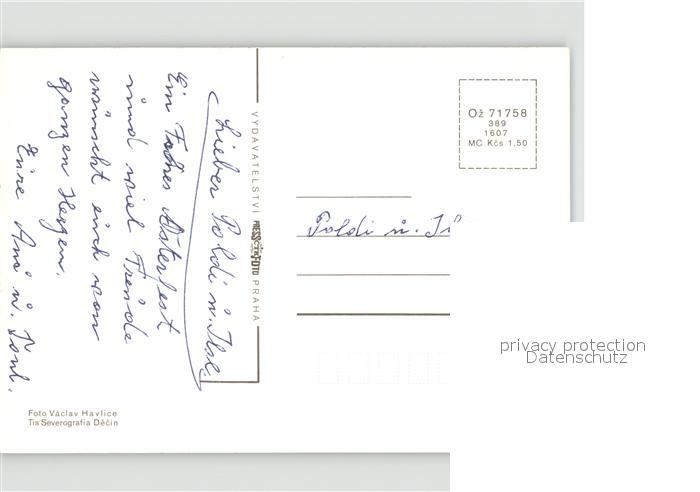 Lieber Poldi u. Ilse.
Ein Frohes Osterfest
und viel Freude
wünscht euch von
ganzen Herzen.
Eure Ani u. Poul.
VYDAVATELSTVÍ PRESSFOTO PRAHA
Ož 71758
389
1607
MC Kčs 1,50
Poldi u. Il
Foto Václav Havlice
Tis Severografia Děčín
privacy protection
Datenschutz